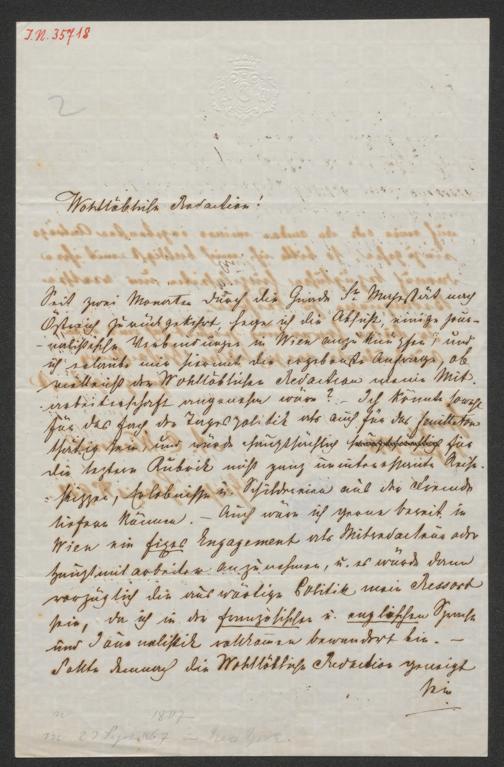 I.N. 35718
2
Wohllöbliche Redaction!
Seit zwei Monaten durch die Gnade Sr Majestät nach
Östreich zurückgekehrt, hege ich die Absicht, einige jour-
nalistische Verbindungen in Wien anzuknüpfen, und
ich erlaube mir hiermit die ergebenste Anfrage ob
vielleicht der Wohllöblichen Redaction meine Mit-
arbeiterschaft angenehm wäre? – Ich könnte sowohl
für das Fach der Tagespolitik als auch für das Feuilleton
thätig sein, und würde hauptsächlich für
die letztere Rubrik nicht ganz uninteressante Reise-
skizzen, Erlebnisse u. Schilderungen aus der Fremde
liefern können. – Auch wäre ich gerne bereit in
Wien ein fixes Engagement als Mitredacteur oder
Hauptmitarbeiter anzunehmen, u. es würde dann
vorzüglich die auswärtige Politik mein Ressort
sein, da ich in der französischen u. englischen Sprache
und Journalistik vollkommen bewandert bin. –
Sollte demnach die Wohllöbliche Redaction geneigt
sein